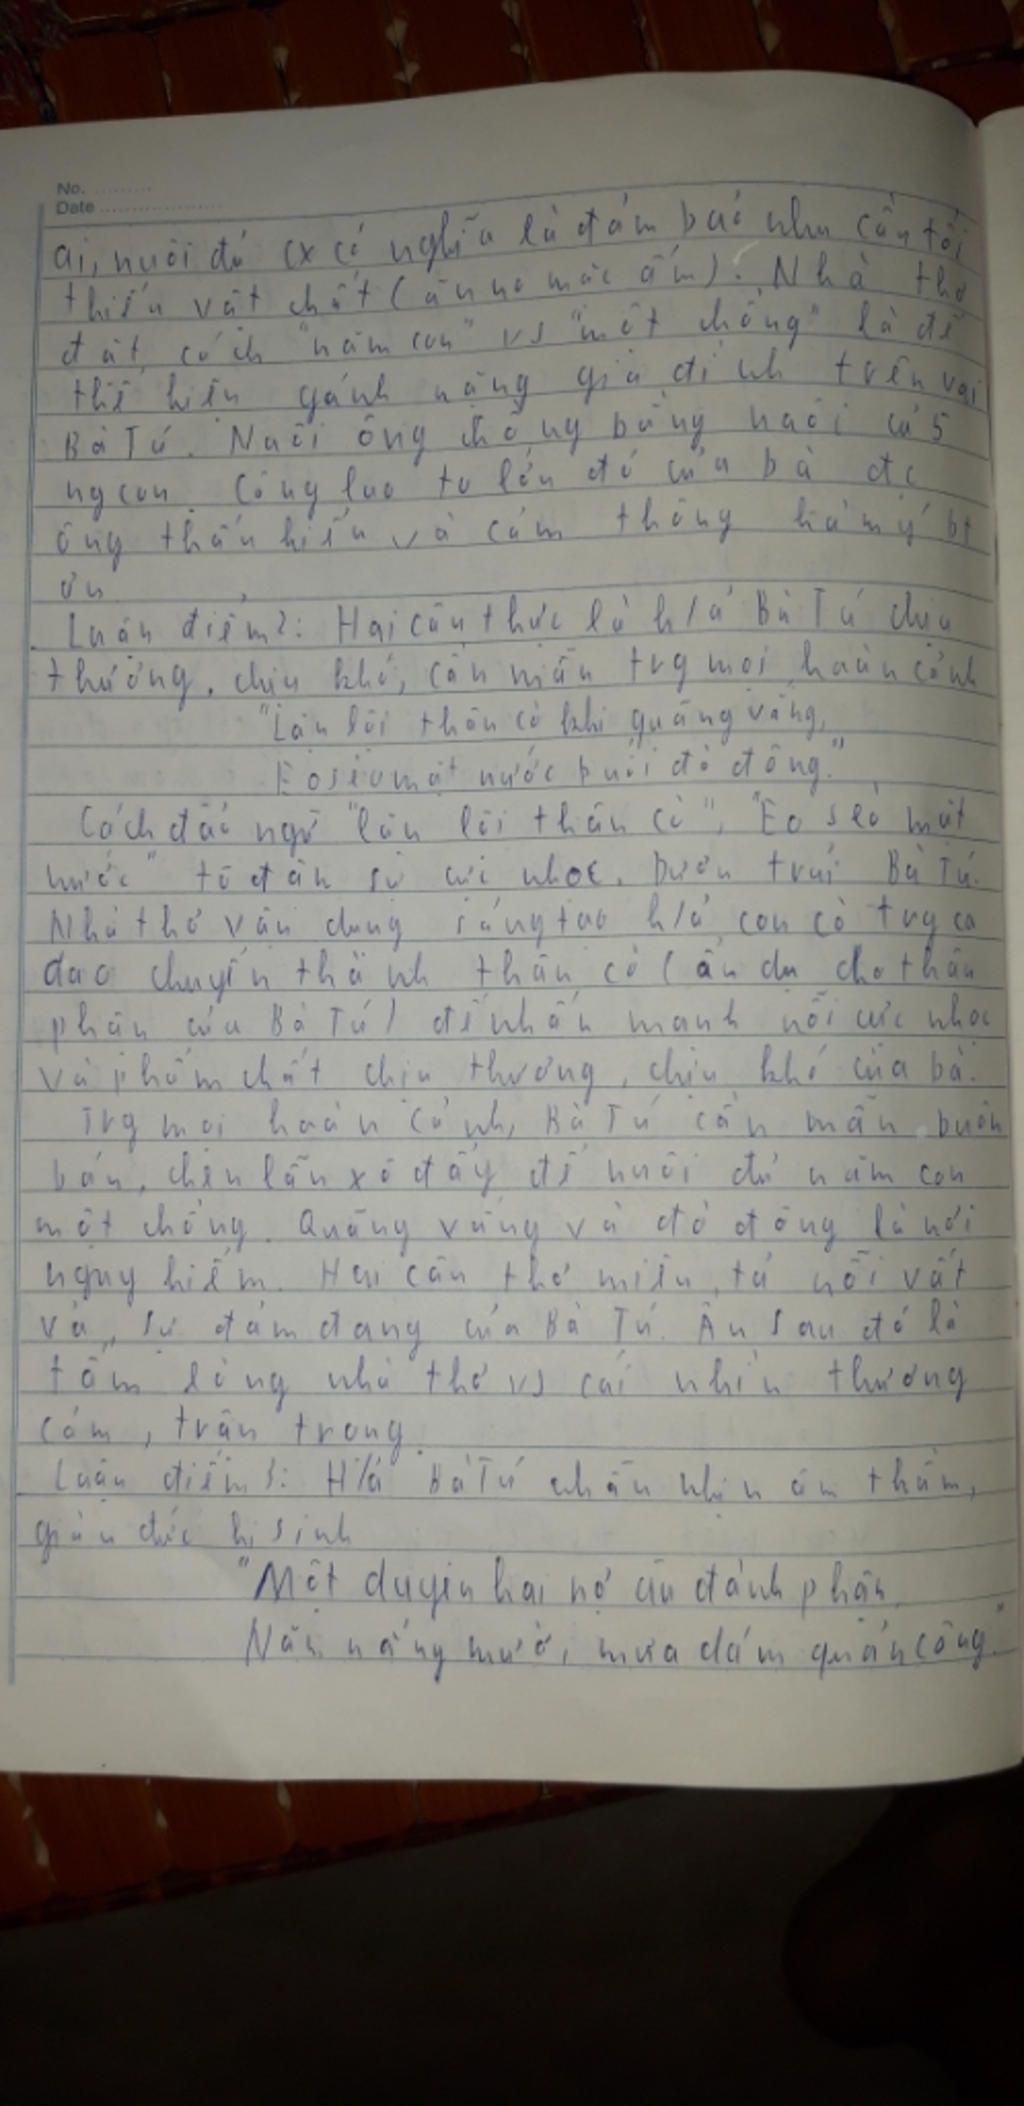 No. .........
Date ....................
ai, nuôi đủ cx có nghĩa là đảm bảo nhu cầu tối
thiểu vật chất (ăn no mặc ấm). Nhà thơ
đặt cách "năm con" vs "một chồng" là để
thể hiện gánh nặng gia đình trên vai
Bà Tú. Nuôi ông chồng bằng nuôi cả 5
ng con. Công lao to lớn đó của bà đc
ông thấu hiểu và cảm thông hàm ý bt
ơn
Luận điểm 2: Hai câu thực là h/ả Bà Tú chịu
thương, chịu khó, cần mẫn trg mọi hoàn cảnh
"Lặn lội thân cò khi quãng vắng,
Eo sèo mặt nước buổi đò đông."
Cách đảo ngữ "lặn lội thân cò", "Eo sèo mặt
nước" tô đậm sự cực nhọc, bươn trải Bà Tú.
Nhà thơ vận dụng sáng tạo h/ả con cò trg ca
dao chuyển thành thân cò (ẩn dụ cho thân
phận của Bà Tú) để nhấn mạnh nỗi cực nhọc
và phẩm chất chịu thương, chịu khó của bà.
Trg mọi hoàn cảnh, Bà Tú cần mẫn buôn
bán, chen lấn xô đẩy để nuôi đủ năm con
một chồng. Quãng vắng và đò đông là nơi
nguy hiểm. Hai câu thơ miêu tả nỗi vất
vả, sự đảm đang của Bà Tú. Ẩn sau đó là
tấm lòng nhà thơ vs cái nhìn thương
cảm, trân trọng.
Luận điểm 3: H/ả Bà Tú nhẫn nhịn âm thầm,
giàu đức hi sinh
"Một duyên hai nợ âu đành phận,
Năm nắng mười mưa dám quản công."